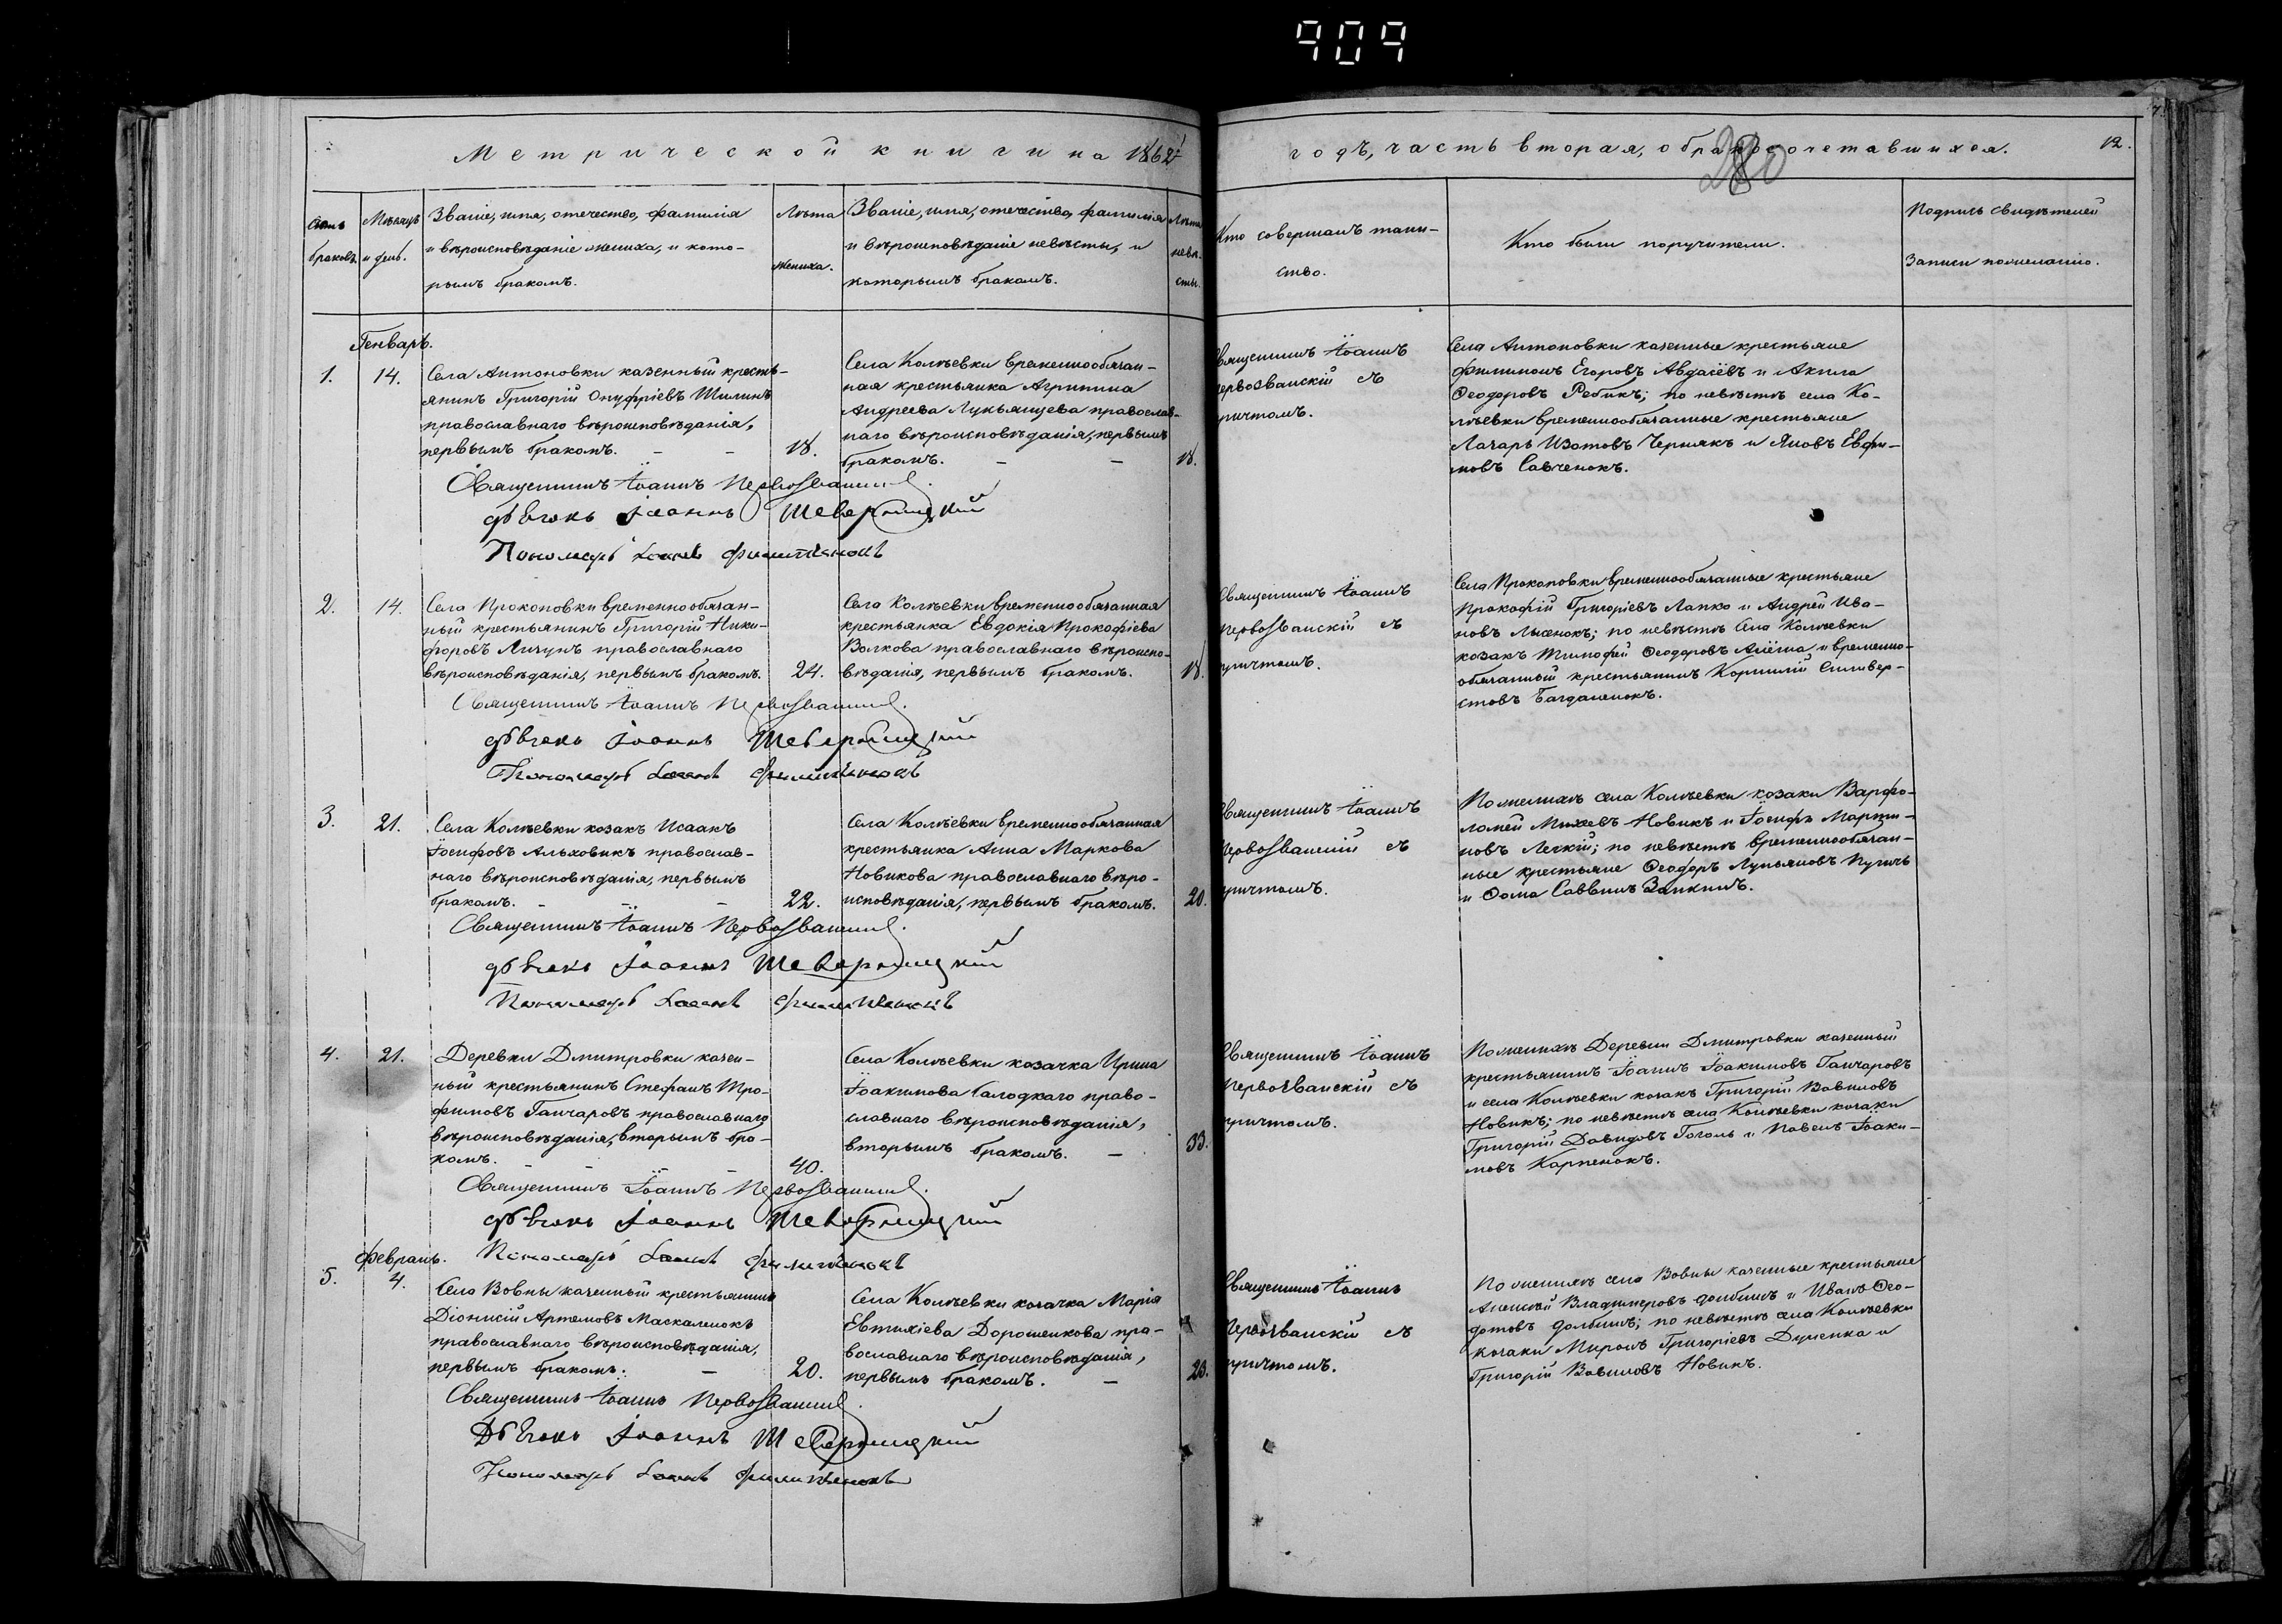 909
Метрической книги на 1862й
годъ, часть вторая, о бракосочетавшихся.
280
12.
Счетъ браковъ.
Мѣсяцъ и день.
Званіе, имя, отечество, фамилія
и вѣроисповѣданіе жениха, и кото-
рымъ бракомъ.
Лѣта
жениха.
Званіе, имя, отечество, фамилія
и вѣроисповѣданіе невѣсты, и
которымъ бракомъ.
Лѣта
невѣ-
сты.
Кто совершалъ таин-
ство.
Кто были поручители.
Подпись свидѣтелей
записи по желанію.
Генварь.
1.
14.
Села Антоновки казенный кресть-
янинъ Григорій Онуфріевъ Шилинъ
православнаго вѣроисповѣданія,
первымъ бракомъ.
18.
Села Колѣевки временнообязан-
ная крестьянка Агрипина
Андреева Лукьянцева православ-
наго вѣроисповѣданія, первымъ
бракомъ.
18.
Священникъ Іоаннъ
Первозванскій съ
причтомъ.
Села Антоновки казенные крестьяне
Филимонъ Егоровъ Авдаіевъ и Акила
Ѳеодоровъ Ребикъ; по невѣстѣ села Ко-
лѣевки временнообязанные крестьяне
Лазарь Изотовъ Чернякъ и Яковъ Евфи-
мовъ Савченокъ.
Священникъ Іоаннъ Первозванскій.
Дьячокъ Іоаннъ
Пономарь
2.
14.
Села Прокоповки временнообязан-
ный крестьянинъ Григорій Ники-
форовъ Личунъ православнаго
вѣроисповѣданія, первымъ бракомъ.
24.
Села Колѣевки временнообязанная
крестьянка Евдокія Прокофіева
Волкова православнаго вѣроиспо-
вѣданія, первымъ бракомъ.
18.
Священникъ Іоаннъ
Первозванскій съ
причтомъ.
Села Прокоповки временнообязанные крестьяне
Прокофій Григоріевъ Лапко и Андрей Ива-
новъ Лысенокъ; по невѣстѣ села Колѣевки
козакъ Тимофей Ѳеодоровъ Алёша, и временно-
обязанный крестьянинъ Корнилій Сильвер-
стовъ Багдаленокъ.
Священникъ Іоаннъ Первозванскій.
Дьячокъ Іоаннъ
Пономарь
3.
21.
Села Колѣевки козакъ Исаакъ
Іосифовъ Альховикъ православ-
наго вѣроисповѣданія, первымъ
бракомъ.
22.
Села Колѣевки временнообязанная
крестьянка Анна Маркова
Новикова православнаго вѣро-
исповѣданія, первымъ бракомъ.
20.
Священникъ Іоаннъ
Первозванскій съ
причтомъ.
По женихѣ села Колѣевки козаки Варфо-
ломей Михеевъ Новикъ и Іосифъ Марти-
новъ Легкій; по невѣстѣ временнообязан-
ные крестьяне Ѳеодоръ Лукьяновъ Пугачь
и Ѳома Саввинъ Заикинъ.
Священникъ Іоаннъ Первозванскій.
Дьячокъ Іоаннъ
Пономарь
4.
21.
Деревни Дмитровки казен-
ный крестьянинъ Стефанъ Тро-
фимовъ Ганчаровъ православнаго
вѣроисповѣданія, вторымъ бра-
комъ.
40.
Села Колѣевки козачка Ирина
Іоакимова Галоцкаго право-
славнаго вѣроисповѣданія,
вторымъ бракомъ.
33.
Священникъ Іоаннъ
Первозванскій съ
причтомъ.
По женихѣ Деревни Дмитровки казенный
крестьянинъ Іоаннъ Іоакимовъ Ганчаровъ
и села Колѣевки козакъ Григорій Вавиловъ
Новикъ; по невѣстѣ села Колѣевки козаки
Григорій Давидовъ Гоголь и Павелъ Іоаки-
мовъ Карпенокъ.
Священникъ Іоаннъ Первозванскій.
Дьячокъ Іоаннъ
Пономарь
Февраль.
5.
4.
Села Вовны казенный крестьянинъ
Діонисій Артемовъ Маскаленокъ
православнаго вѣроисповѣданія,
первымъ бракомъ.
20.
Села Колѣевки козачка Марія
Евтихіева Дорошенкова пра-
вославнаго вѣроисповѣданія,
первымъ бракомъ.
23.
Священникъ Іоаннъ
Первозванскій съ
причтомъ.
По женихѣ села Вовны казенные крестьяне
Алексѣй Владимеровъ Долбинъ и Иванъ Ѳео-
дотовъ Долбинъ; по невѣстѣ села Колѣевки
козаки Миронъ Григоріевъ Дуденка и
Григорій Вавиловъ Новикъ.
Священникъ Іоаннъ Первозванскій.
Дьячокъ Іоаннъ
Пономарь